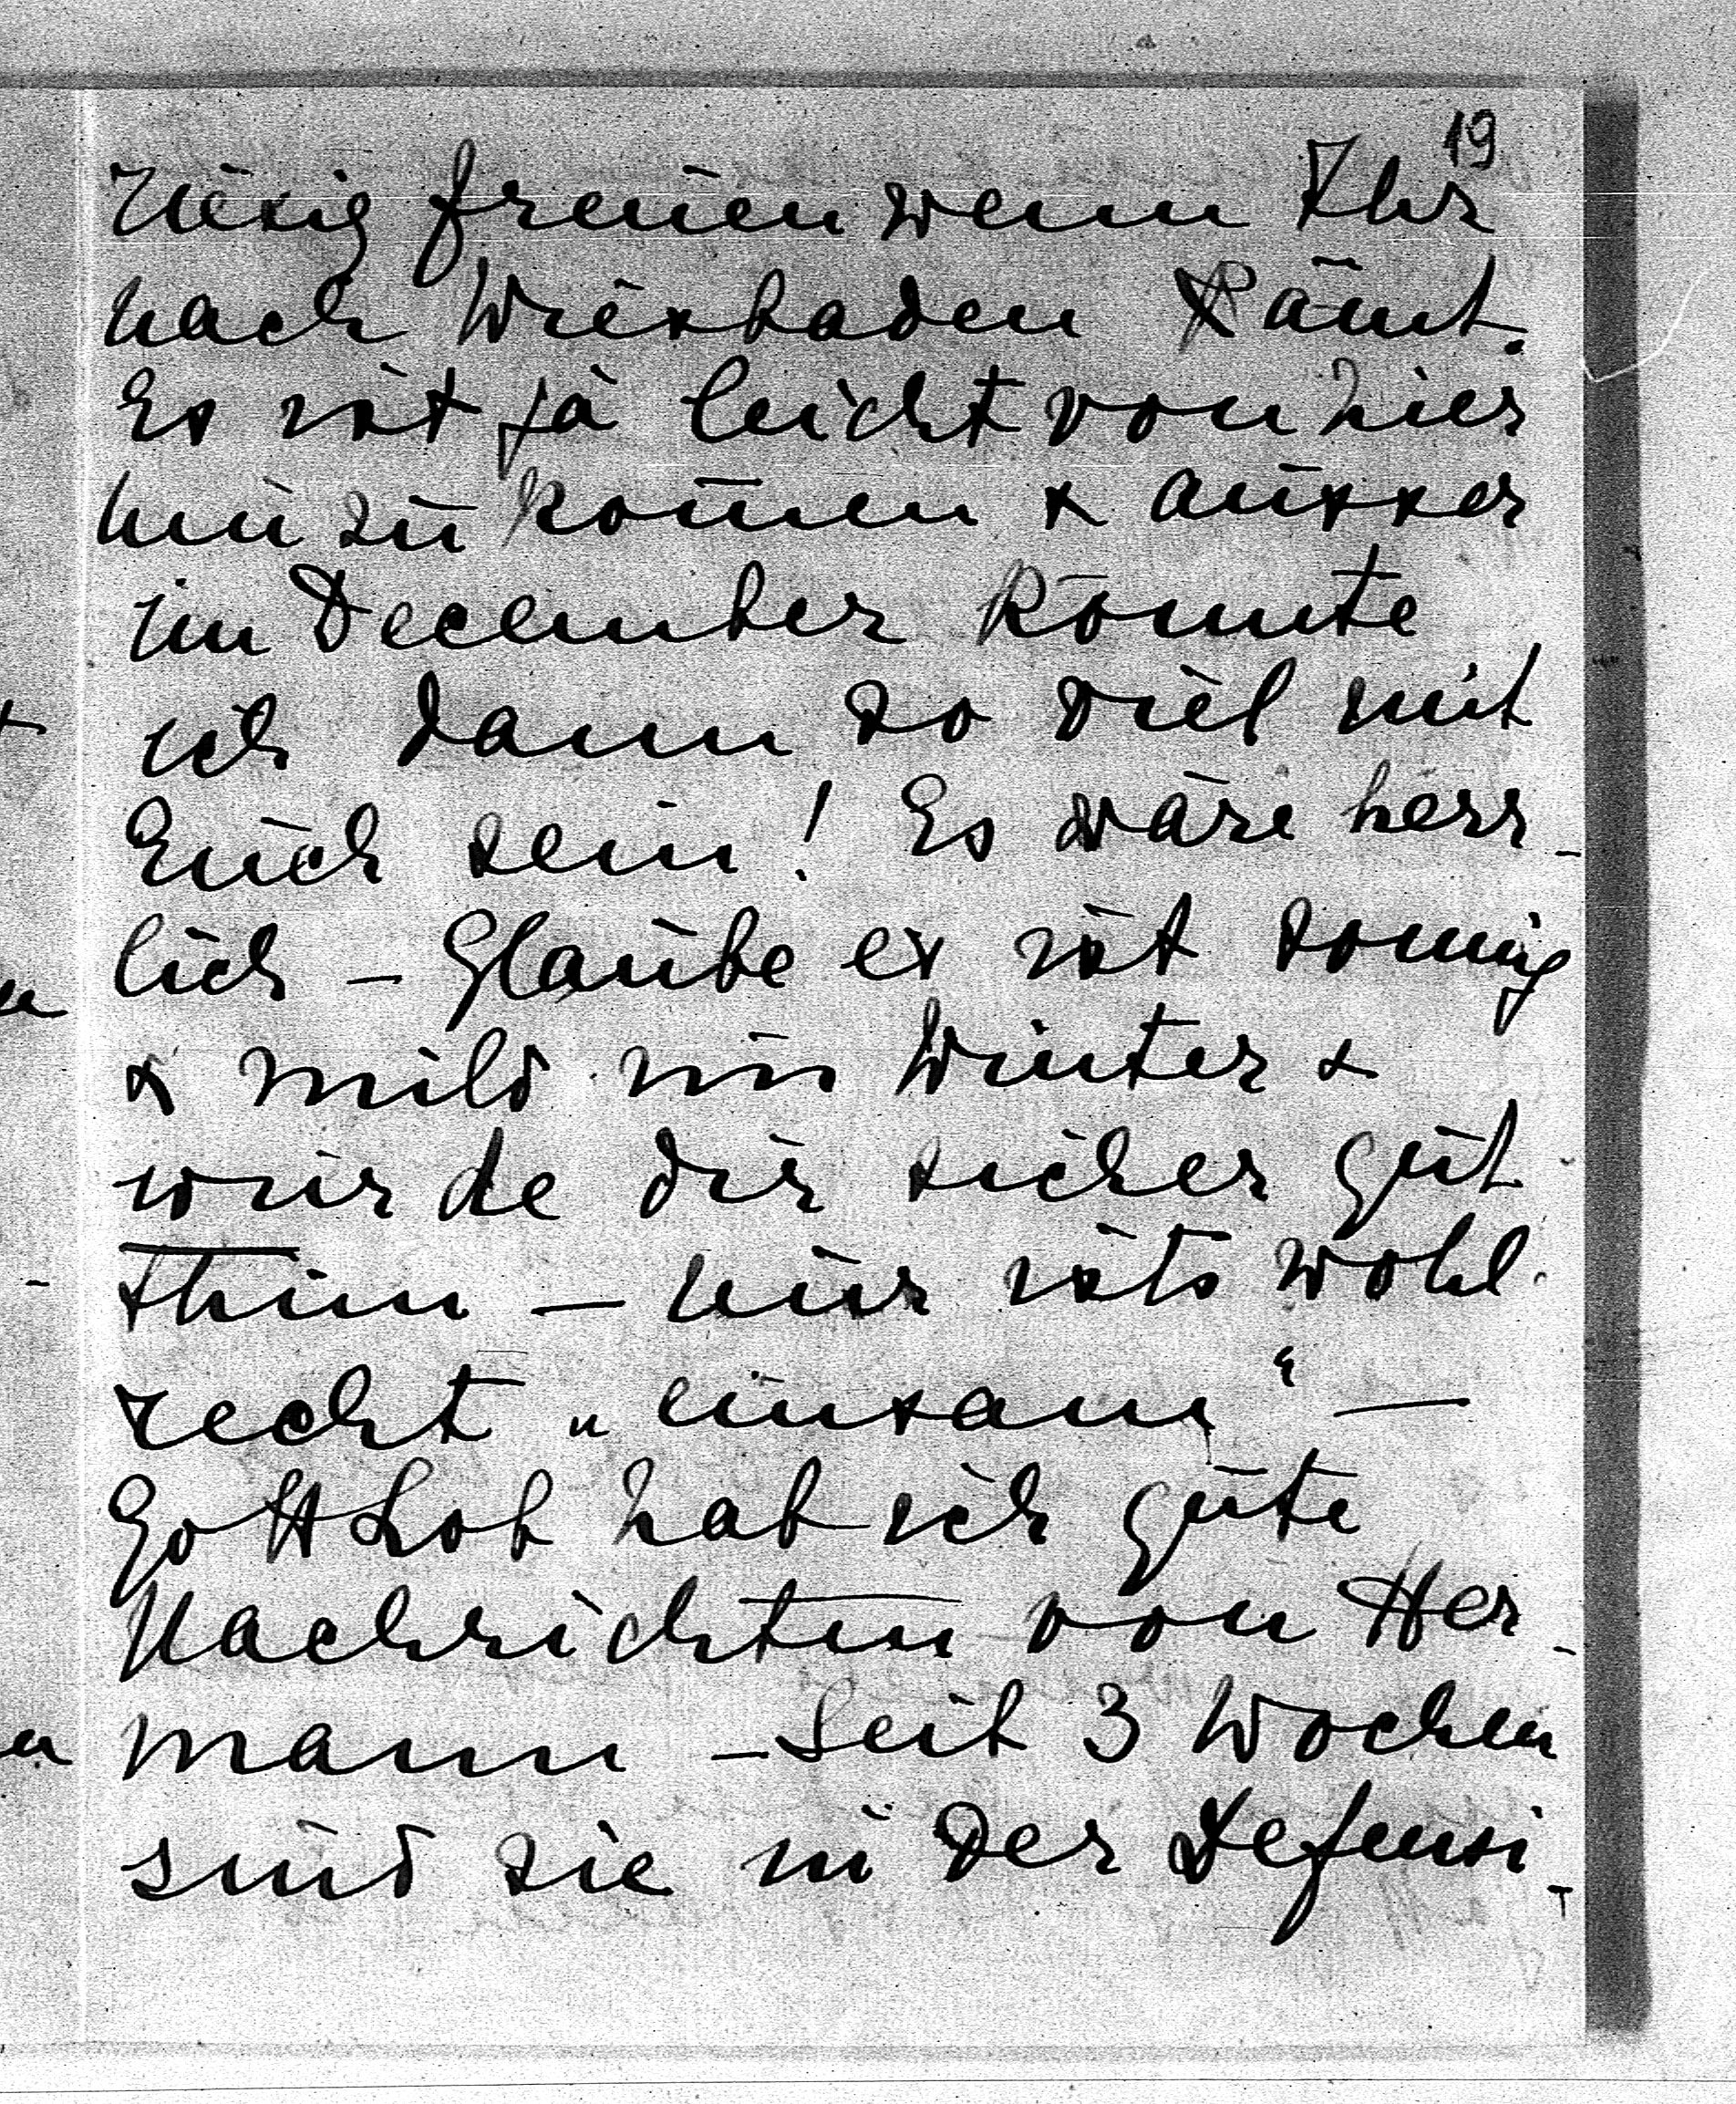 19
riesig freuen wenn Ihr
nach Wiesbaden kämt.
Es ist ja leicht von hier
hin zu kom̄en & ausser
im December könnte
ich dann so viel mit
Euch sein! Es wäre herr-
lich – Glaube es ist sonnig
& mild im Winter &
würde dir sicher gut
thun – nur ists wohl
recht „einsam“ –
Gott Lob hab ich gute
Nachrichten von Her-
mann – Seit 3 Wochen
sind sie in der Defensi-